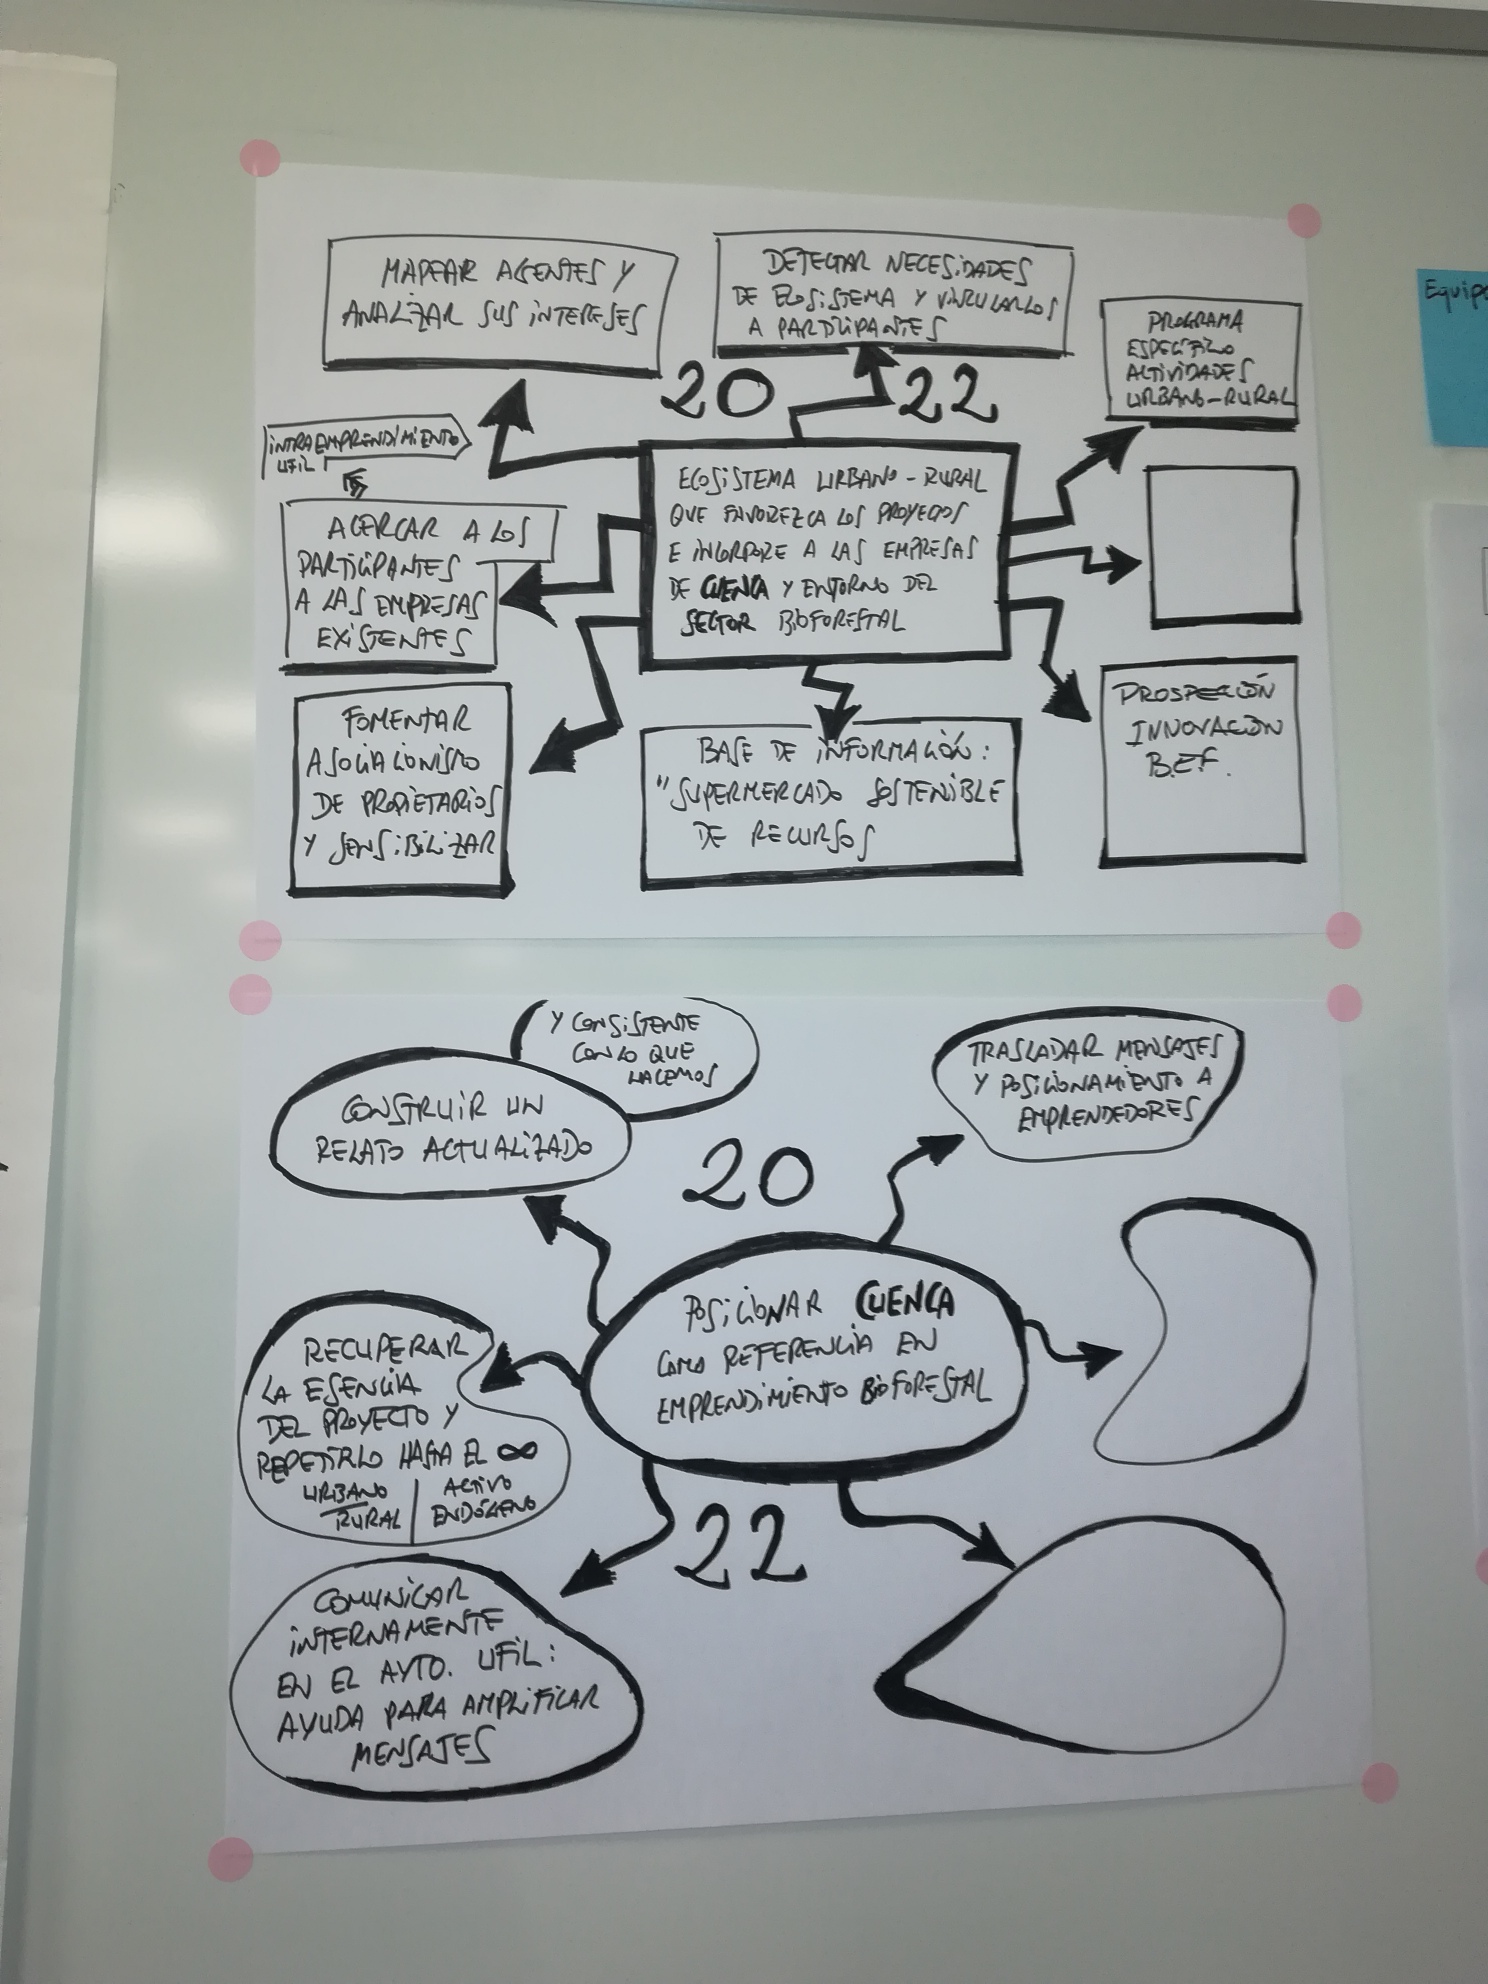 MAPEAR AGENTES Y
ANALIZAR SUS INTERESES
DETECTAR NECESIDADES
DE ECOSISTEMA Y VINCULARLOS
A PARTICIPANTES
PROGRAMA
ESPECÍFICO
ACTIVIDADES
URBANO-RURAL
20 22
INTRAEMPRENDIMIENTO
UFIL
ACERCAR A LOS
PARTICIPANTES
A LAS EMPRESAS
EXISTENTES
ECOSISTEMA URBANO-RURAL
QUE FAVOREZCA LOS PROYECTOS
E INCORPORE A LAS EMPRESAS
DE CUENCA Y ENTORNO DEL
SECTOR BIOFORESTAL
FOMENTAR
ASOCIACIONISMO
DE PROPIETARIOS
Y SENSIBILIZAR
BASE DE INFORMACIÓN:
"SUPERMERCADO SOSTENIBLE
DE RECURSOS
PROSPECCIÓN
INNOVACIÓN
B.E.F.
Equipo
Y CONSISTENTE
CON LO QUE
HACEMOS
CONSTRUIR UN
RELATO ACTUALIZADO
TRASLADAR MENSAJES
Y POSICIONAMIENTO A
EMPRENDEDORES
20
POSICIONAR CUENCA
COMO REFERENCIA EN
EMPRENDIMIENTO BIOFORESTAL
RECUPERAR
LA ESENCIA
DEL PROYECTO Y
REPETIRLO HASTA EL ∞
URBANO
RURAL
ACTIVO
ENDÓGENO
22
COMUNICAR
INTERNAMENTE
EN EL AYTO. UFIL:
AYUDA PARA AMPLIFICAR
MENSAJES